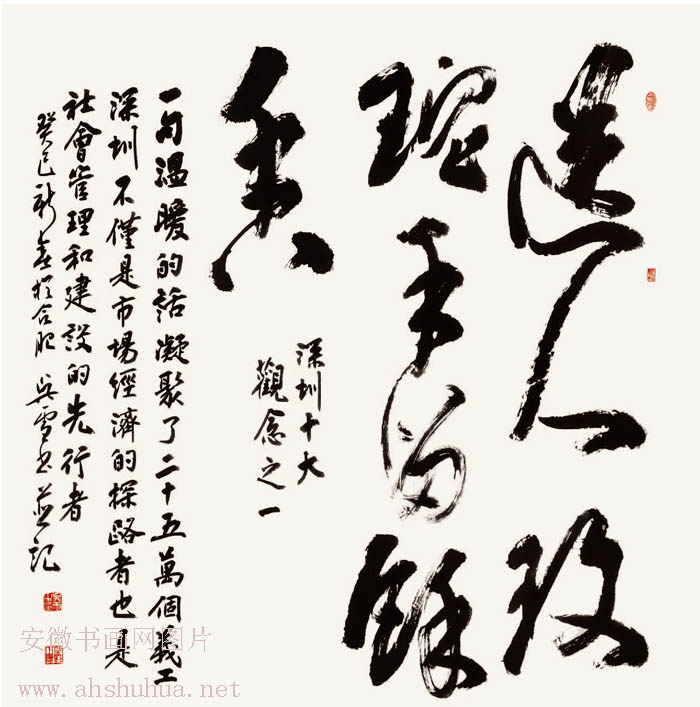 送人玫
瑰手留餘
香
深圳十大
觀念之一
一句溫暖的話凝聚了二十五萬個義工
深圳不僅是市場經濟的探路者也是
社會管理和建設的先行者
癸巳新春於合肥 吴雪書並記
安徽书画网图片
www.ahshuhua.net